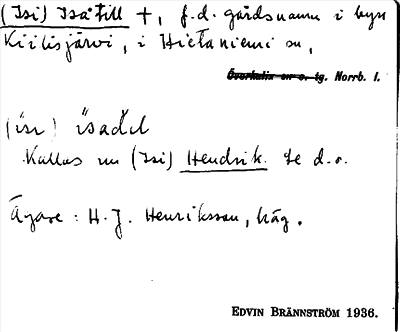 (Isi) Isatill †, f.d. gårdsnamn i byn
Kiilisjärvi, i Hietaniemi sn,
Överkalix sn o. tg. Norrb. l.
(isi) isadel
Kallas nu (Isi) Hendrik. Se d.o.
Ägare: H. J. Henriksson, häg.
EDVIN BRÄNNSTRÖM 1936.